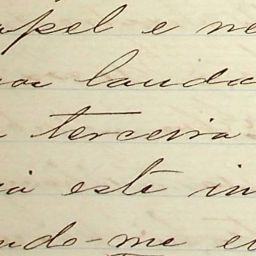 apel e ne
lauda
terceira
ia este in
ndo-me e